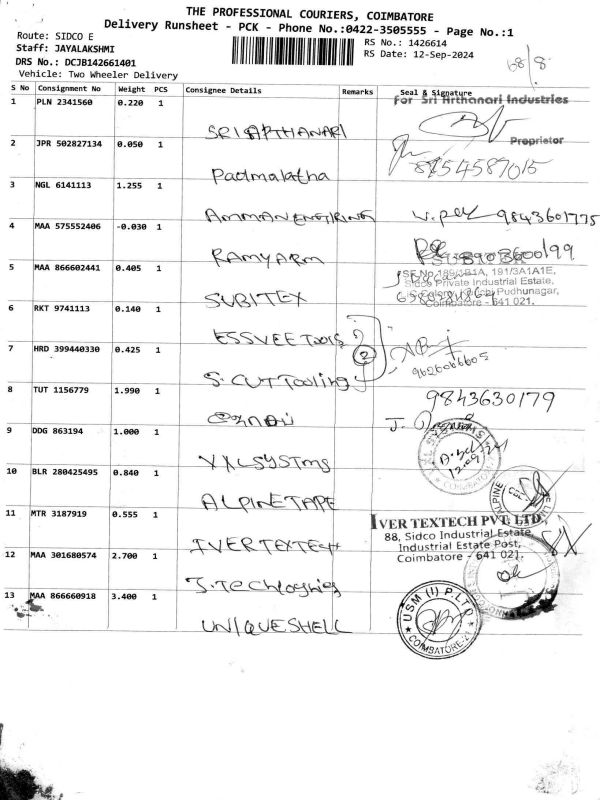 THE PROFESSIONAL COURIERS, COIMBATORE
Delivery Runsheet - PCK - Phone No.:0422-3505555 - Page No.:1
Route: SIDCO E
Staff: JAYALAKSHMI
DRS No.: DCJB142661401
Vehicle: Two Wheeler Delivery
RS No.: 1426614
RS Date: 12-Sep-2024
68/8
S No Consignment No Weight PCS Consignee Details Remarks Seal & Signature
1 PLN 2341560 0.220 1
SRI ARTHANARI
for Sri Arthanari Industries
Proprietor
2 JPR 502827134 0.050 1
Padmalatha
8754587015
3 NGL 6141113 1.255 1
AMMAN ENGIRING
9843601775
4 MAA 575552406 -0.030 1
RAMYARM
5 MAA 866602441 0.405 1
SUBITEX
SUBITEX
SF.No.189/1B1A, 191/3A1A1E,
Sidco Private Industrial Estate,
Pudhunagar,
Coimbatore - 641 021.
6 RKT 9741113 0.140 1
ESSVEE Tools
2
7 HRD 399440330 0.425 1
S. CUT Tooling
9626066605
8 TUT 1156779 1.990 1
9843630179
9 DDG 863194 1.000 1
XXLSYSTms
10 BLR 280425495 0.840 1
ALPINE TAPE
ALPINE
11 MTR 3187919 0.555 1
IVERTEXTECH
IVER TEXTECH PVT. LTD,
88, Sidco Industrial Estate,
Industrial Estate Post,
Coimbatore - 641 021.
12 MAA 301680574 2.700 1
J. Techlogies
13 MAA 866660918 3.400 1
UNIQUESHELL
USM (I) P.LTD
COIMBATORE-21